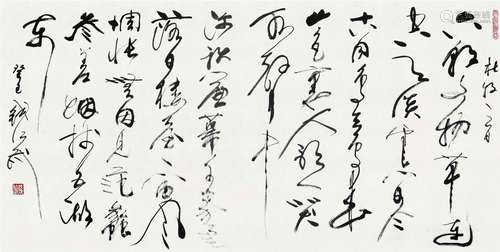 杜牧
六朝文物草連
空天淡雲閒今
古同鳥去鳥來
山色裏人歌人哭
水聲中
深秋簾幕千家雨
落日樓臺一笛風
惆悵無因見范蠡
參差烟樹五湖
東
癸巳